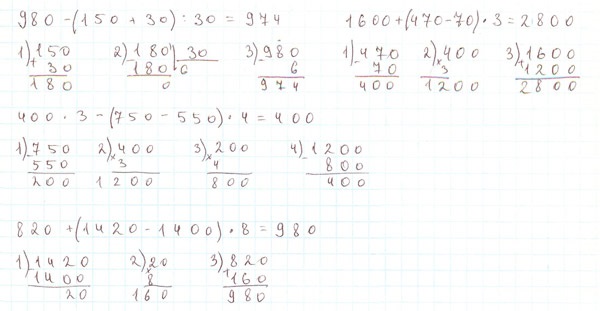 980 - (150 + 30) : 30 = 974
1600 + (470 - 70) · 3 = 2800
1) 150
+ 30
180
2) 180 | 30
- 180 | 6
0
3) - 980
6
974
1) - 470
70
400
2) × 400
3
1200
3) 1600
+ 1200
2800
400 · 3 - (750 - 550) · 4 = 400
1) - 750
550
200
2) × 400
3
1200
3) × 200
4
800
4) - 1200
800
400
820 + (1420 - 1400) · 8 = 980
1) - 1420
1400
20
2) × 20
8
160
3) 820
+ 160
980